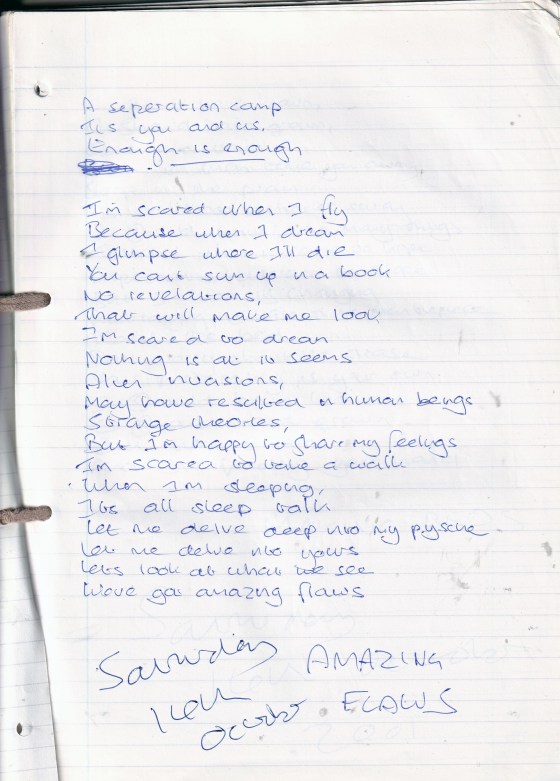 A seperation camp
It's you and us.
Enough is enough
I'm scared when I fly
Because when I dream
I glimpse where I'll die
You cant sum up in a book
No revelations,
That will make me look
I'm scared to dream
Nothing is as it seems
Alien invasions,
May have resulted in human beings
Strange theories,
But I'm happy to share my feelings
I'm scared to take a walk
When I'm sleeping,
It's all sleep talk
Let me delve deep into my pysche
Let me delve into yours
Lets look at what we see
We've got amazing flaws
Saturday
October
AMAZING
FLAWS